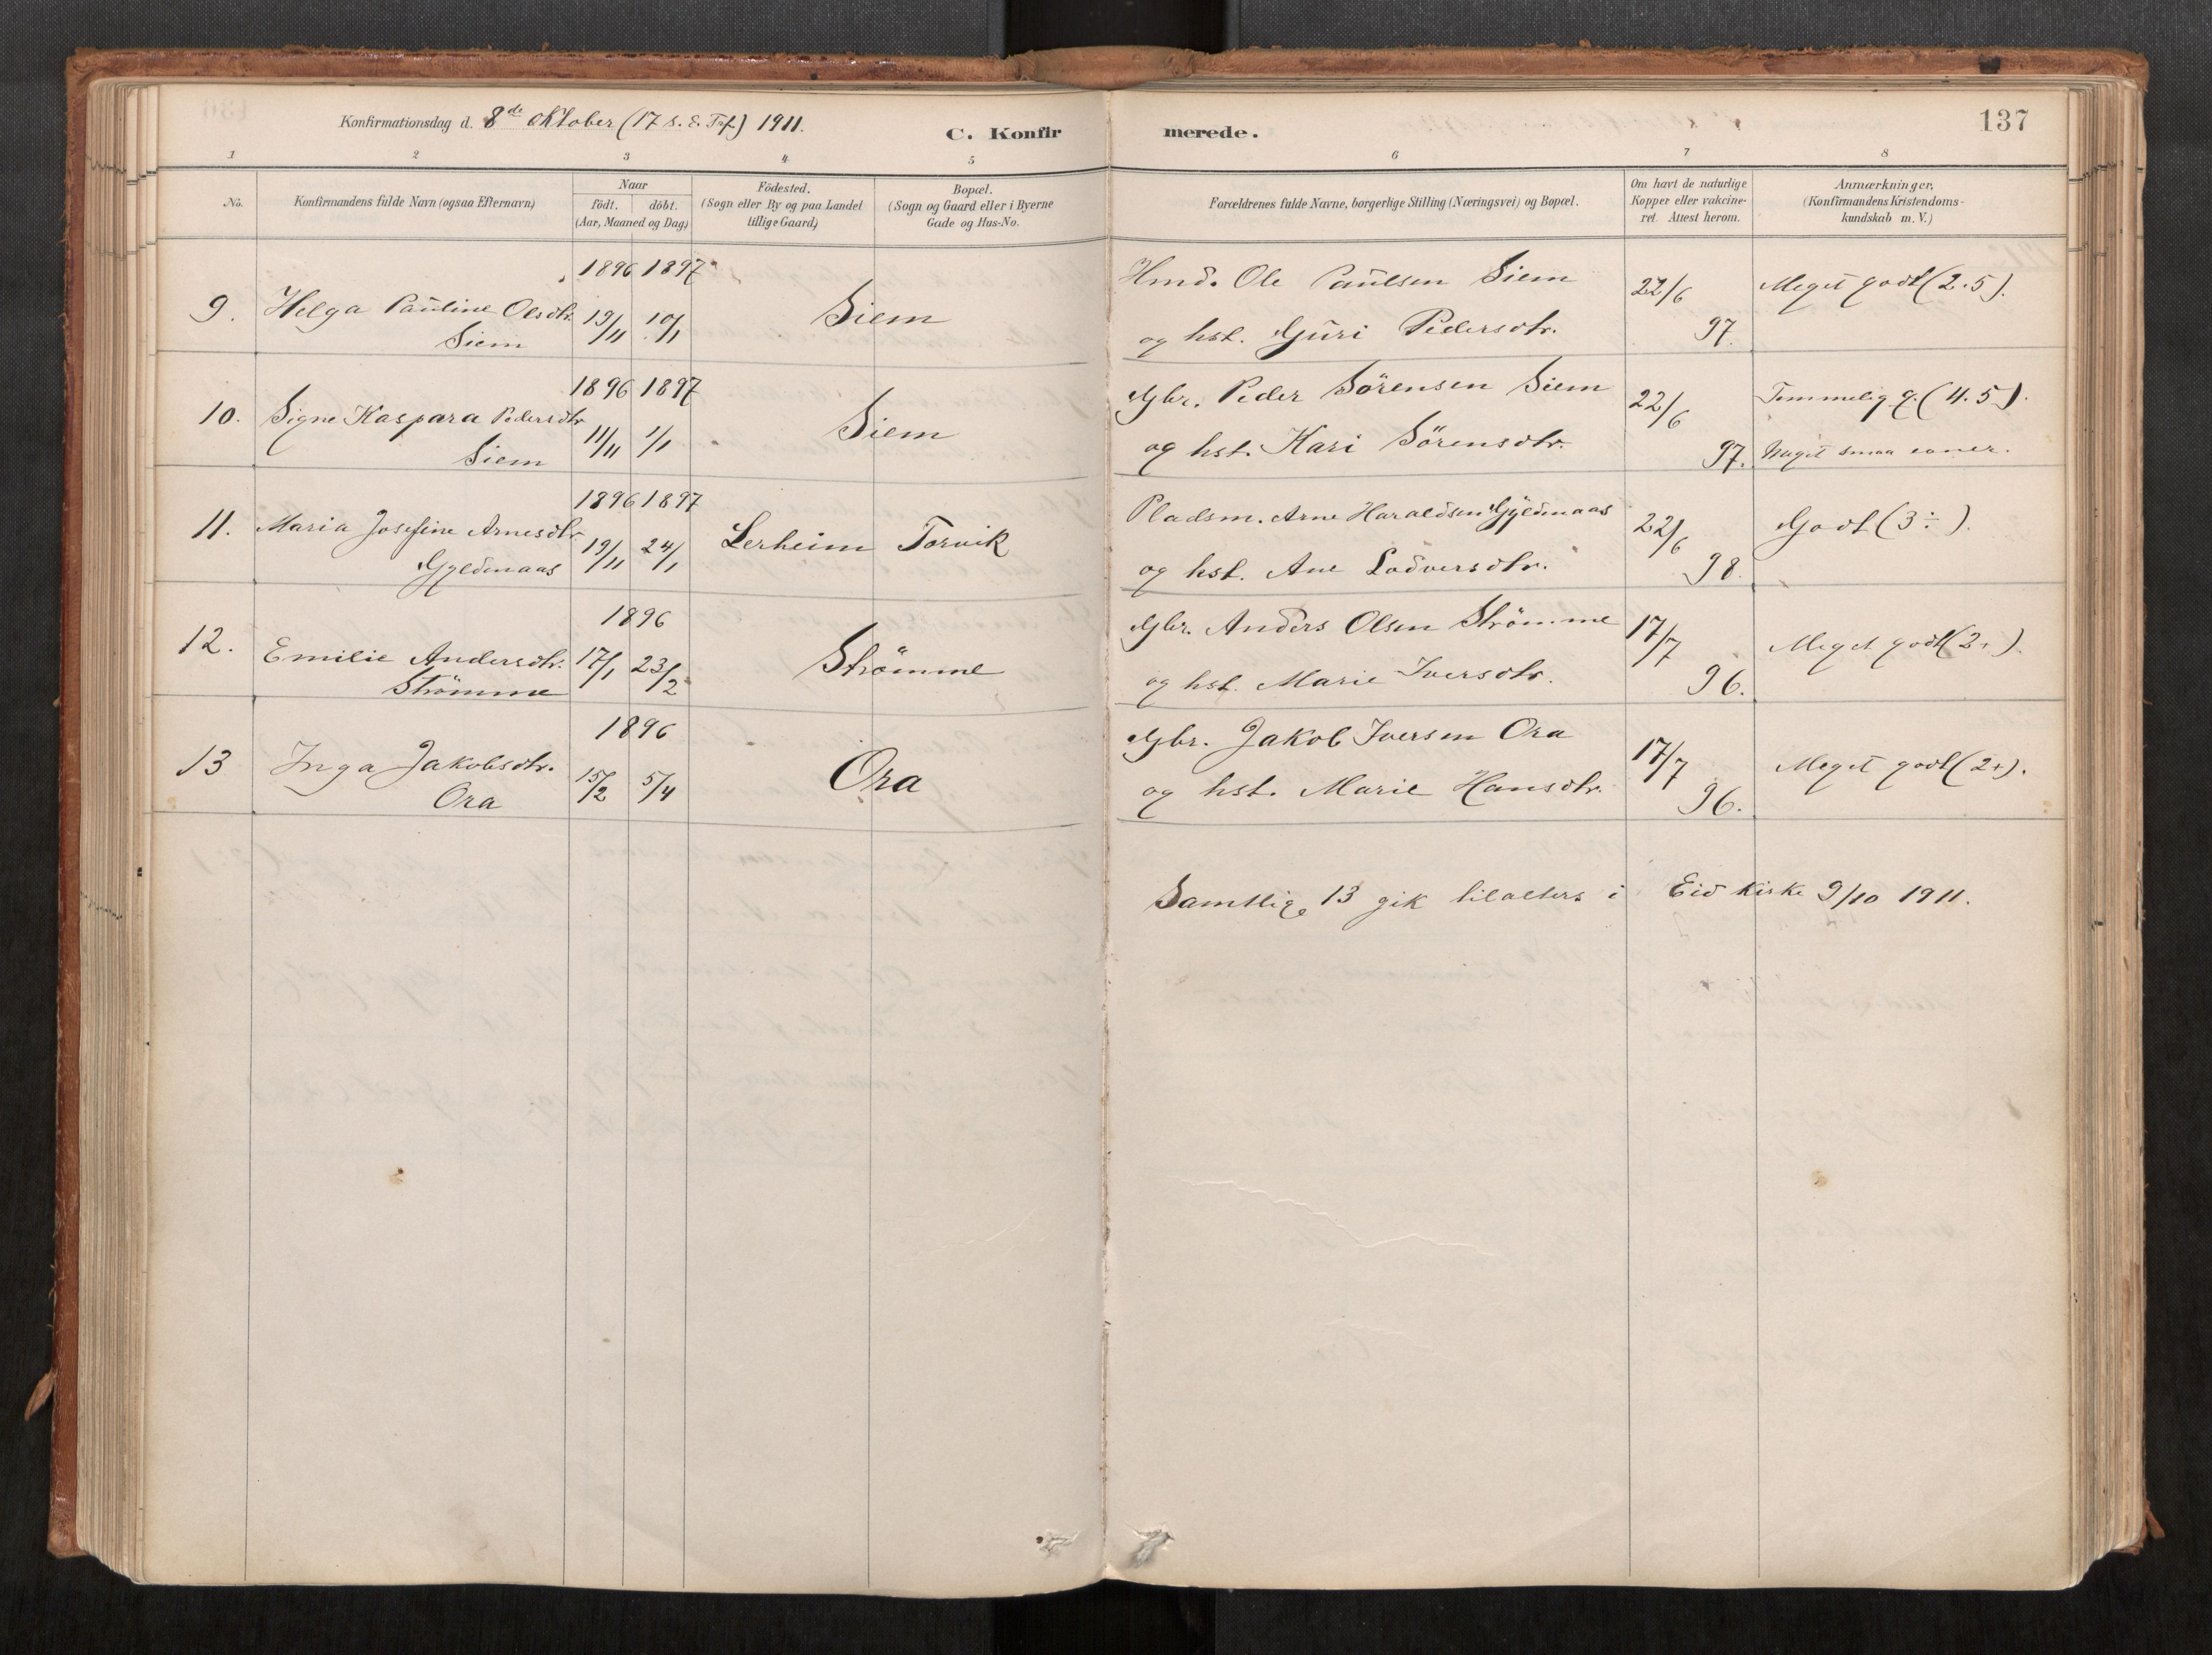 Konfirmationsdag d. 8de Oktober (17 s. e. Tr.f.) 1911.
C. Konfirmerede.
137
1 2 3 4 5 6 7 8
No.
Konfirmandens fulde Navn (ogsaa Efternavn)
Naar
födt. döbt.
(Aar, Maaned og Dag)
Födested.
(Sogn eller By og paa Landet
tillige Gaard)
Bopæl.
(Sogn og Gaard eller i Byerne
Gade og Hus-No.
Forældrenes fulde Navne, borgerlige Stilling (Næringsvei) og Bopæl.
Om havt de naturlige
Kopper eller vakcine-
ret. Attest herom.
Anmærkninger,
(Konfirmandens Kristendoms-
kundskab m. V.)
1896 1897
9. Helga Pauline Olsdtr. 19/11 10/1 Siem Hmd. Ole Paulsen Siem 22/6 Meget godt (2.5).
Siem og hst. Guri Pedersdtr. 97.
1896 1897
10. Signe Kaspara Pedersdtr 11/11 1/1 Siem Gbr. Peder Sörensen Siem 22/6 Temmelig g. (4.5).
Siem og hst. Kari Sörensdtr. 97. Noget smaa evner.
1896 1897
11. Maria Josefine Arnesdtr. 19/11 24/1 Lerheim Torvik Pladsm. Arne Haraldsen Gjeldnaas 22/6 Godt (3÷).
Gjeldnaas og hst. Ane Lodversdtr. 98.
1896
12. Emilie Andersdtr. 17/1 23/2 Strömme Gbr. Anders Olsen Strömme 17/7 Meget godt (2+).
Strömme og hst. Marie Iversdtr. 96.
1896
13 Inga Jakobsdtr. 15/2 5/4 Ora Gbr. Jakob Iversen Ora 17/7 Meget godt (2+).
Ora og hst. Marie Hansdtr. 96.
Samtlige 13 gik tilalters i Eid kirke 9/10 1911.